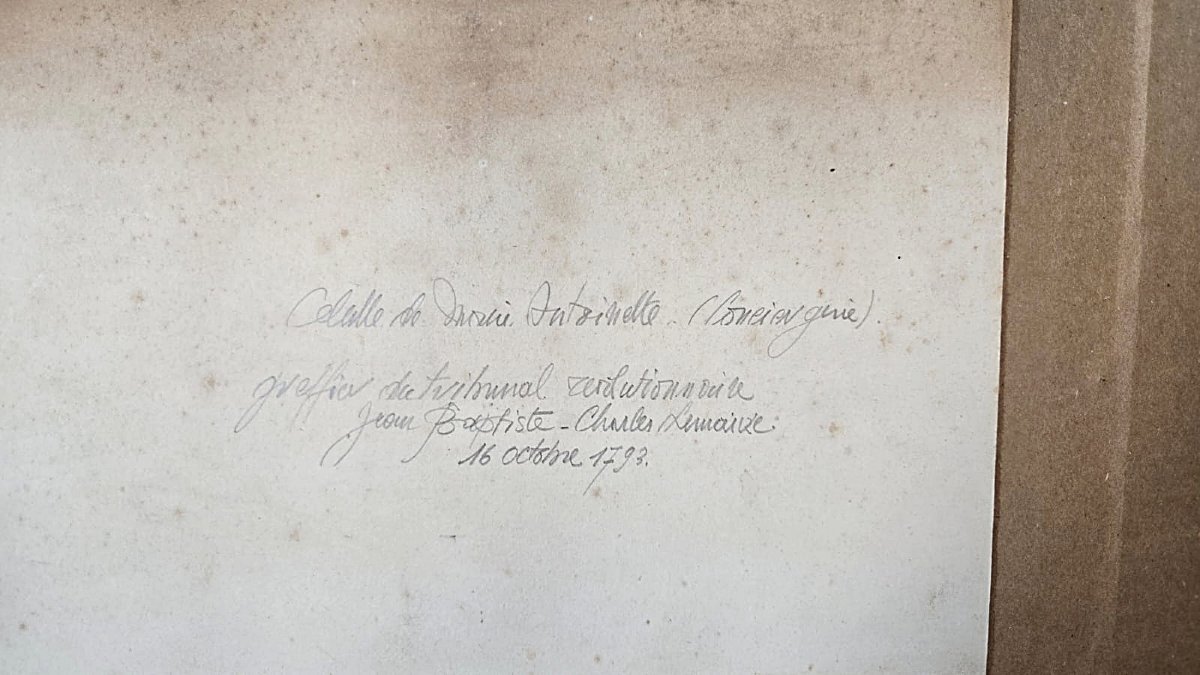 Cellule de Marie Antoinette (Conciergerie).
greffier du tribunal révolutionnaire
Jean Baptiste-Charles Lemaire.
16 octobre 1793.